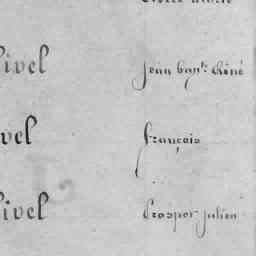 ivel Jean bapt. René
vel François
ivel Prosper Julien